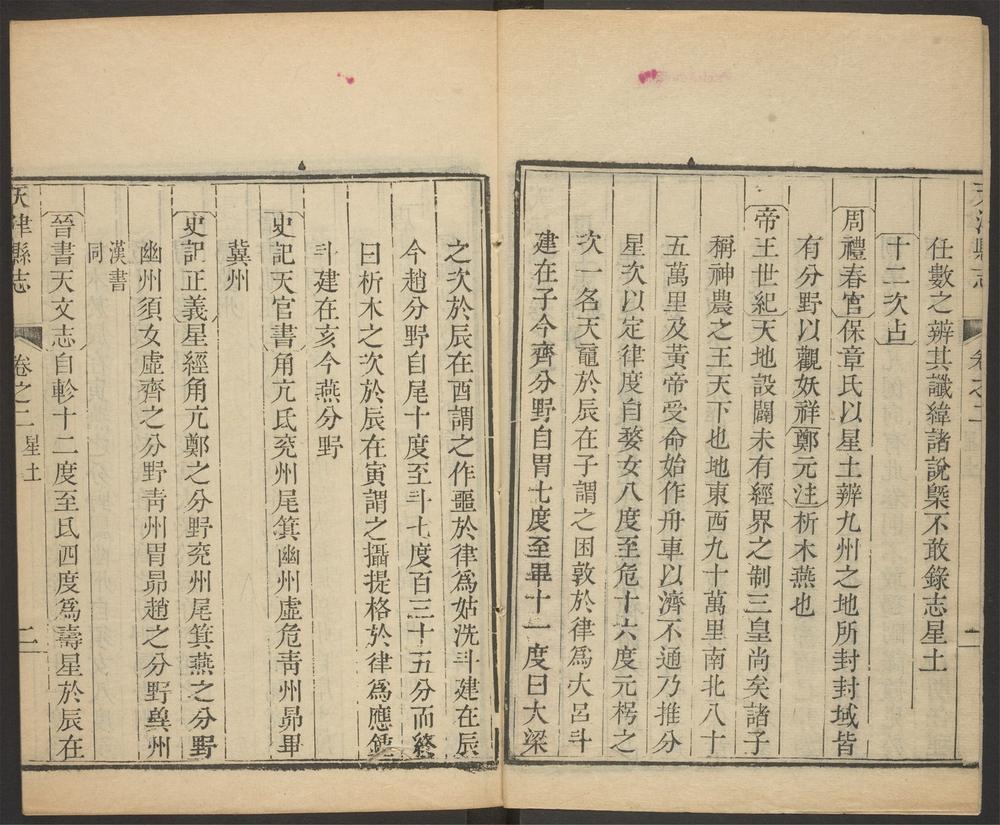 任數之辨其讖緯諸說槩不敢錄志星土
十二次占
周禮春官保章氏以星土辨九州之地所封封域皆
有分野以觀妖祥鄭元注析木燕也
帝王世紀天地設闢未有經界之制三皇尚矣諸子
稱神農之王天下也地東西九十萬里南北八十
五萬里及黃帝受命始作舟車以濟不通乃推分
星次以定律度自婺女八度至危十六度元枵之
次一名天黿於辰在子謂之困敦於律爲大呂斗
建在子今齊分野自胃七度至畢十一度曰大梁
之次於辰在酉謂之作噩於律爲姑洗斗建在辰
今趙分野自尾十度至斗七度百三十五分而終
曰析木之次於辰在寅謂之攝提格於律爲應鍾
斗建在亥今燕分野
史記天官書角亢氐兖州尾箕幽州虛危靑州昴畢
冀州
史記正義星經角亢鄭之分野兖州尾箕燕之分野
幽州須女虛齊之分野靑州胃昴趙之分野兾州
漢書
同
晉書天文志自軫十二度至氐四度爲壽星於辰在
天津縣志
卷之二
星土
二